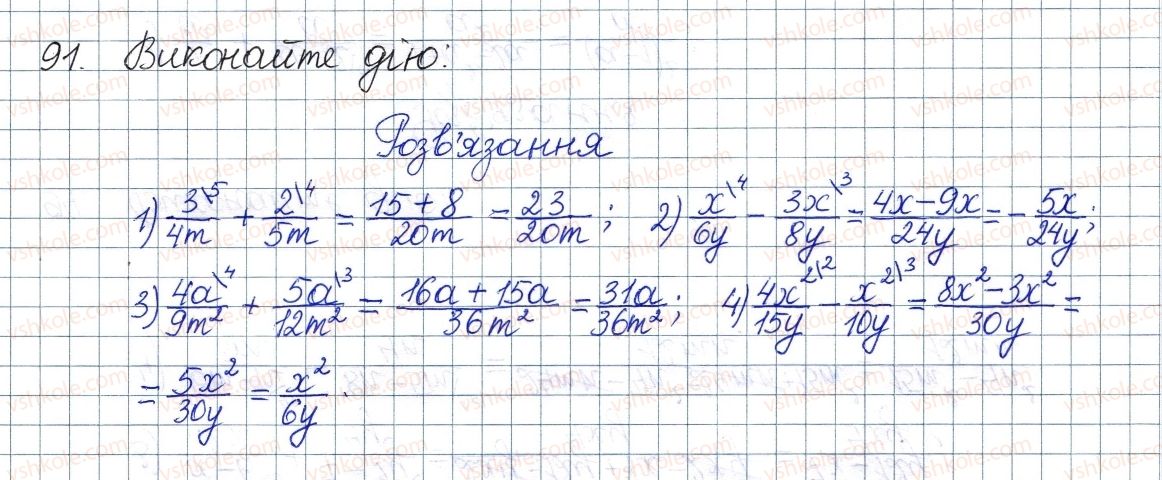 91. Виконайте дію:
Розв'язання
1) 3\5/4m + 2\4/5m = (15+8)/20m = 23/20m; 2) x\4/6y − 3x\3/8y = (4x−9x)/24y = −5x/24y;
3) 4a\4/9m² + 5a\3/12m² = (16a+15a)/36m² = 31a/36m²; 4) 4x²\2/15y − x²\3/10y = (8x²−3x²)/30y =
= 5x²/30y = x²/6y.
vshkole.com